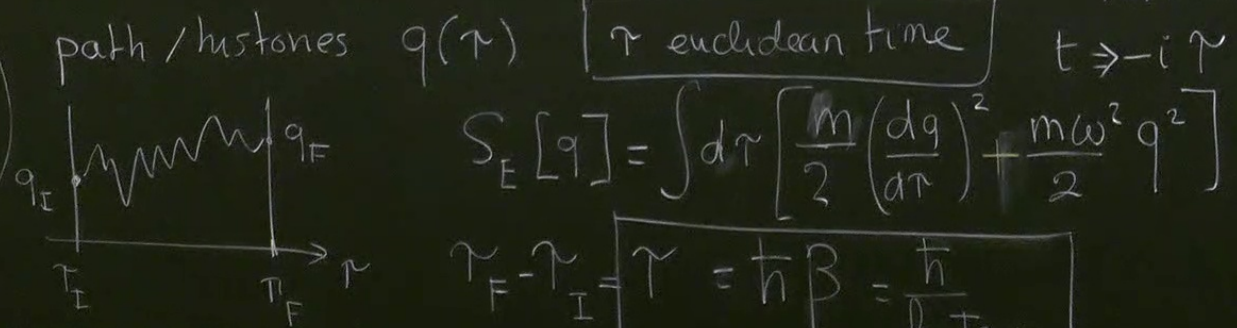 path / histories q(τ) τ euclidean time t → -i τ
q_I q_F S_E [q] = ∫ dτ [ m/2 (dq/dτ)² + mω²/2 q² ]
τ_I τ_F τ τ_F - τ_I = τ = ħβ = ħ/